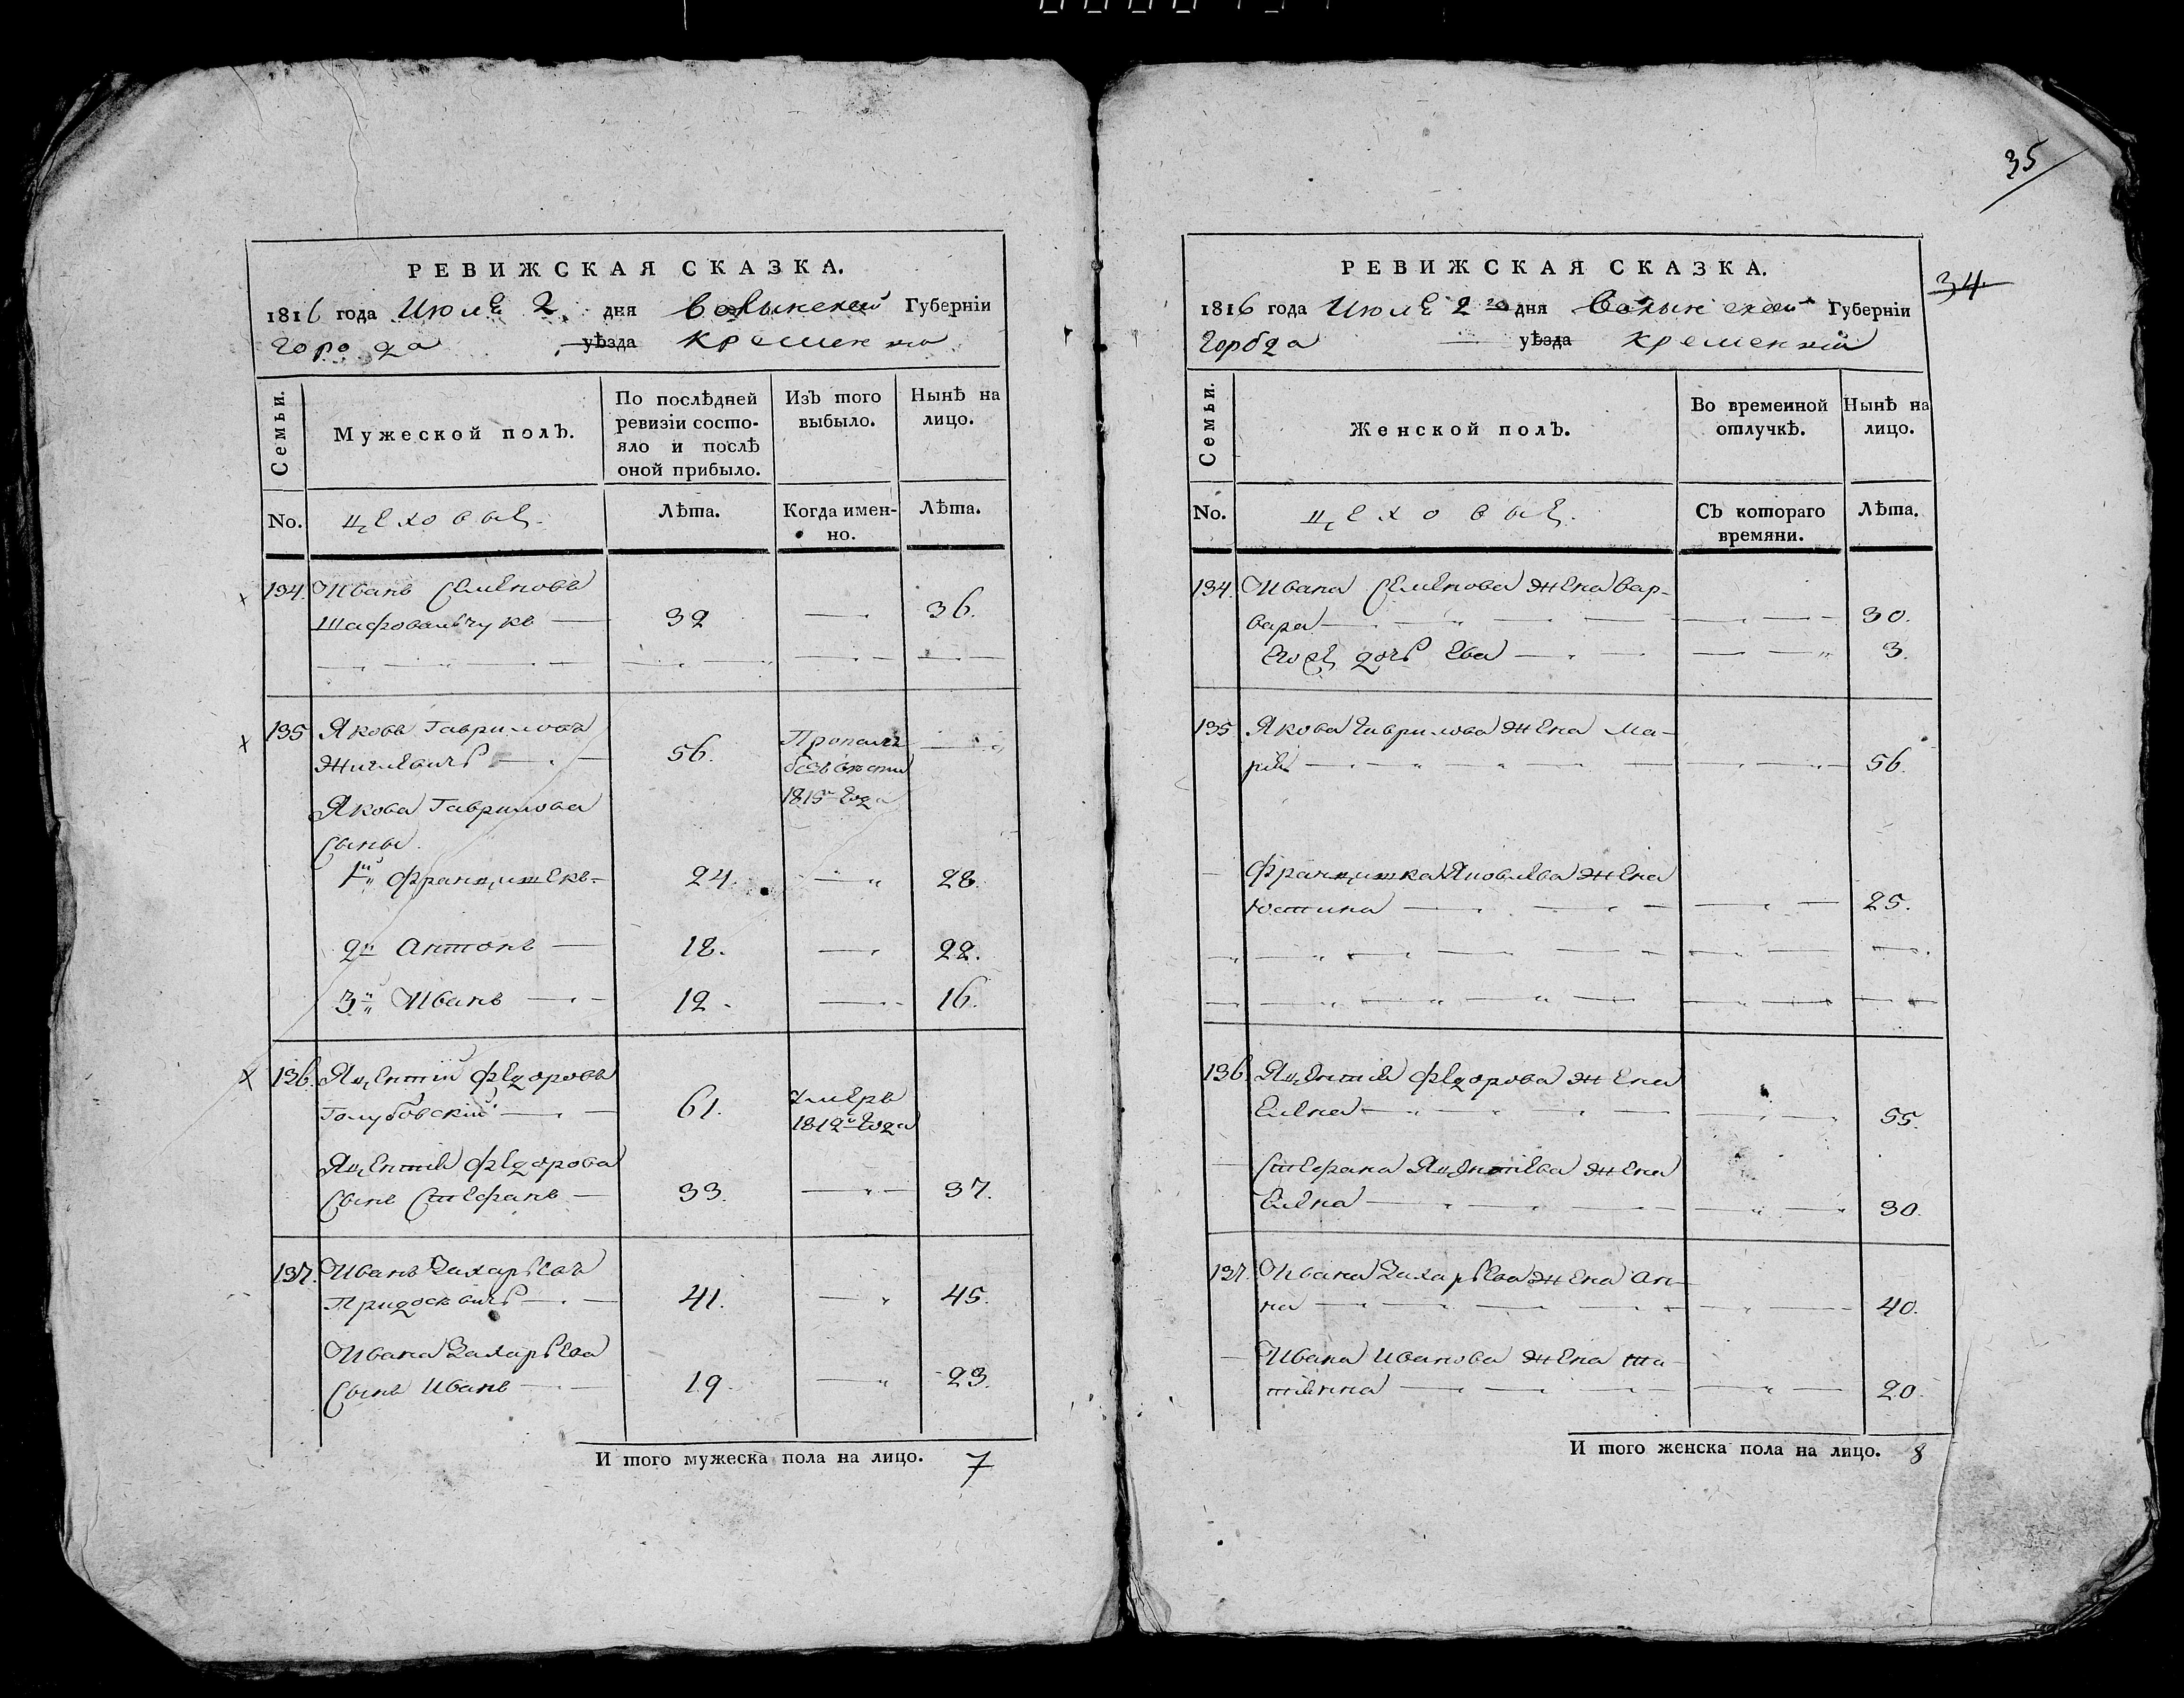 35
34
РЕВИЖСКАЯ СКАЗКА.
1816 года Июля 2 дня Волынской Губерніи
города уѣзда кременца
Семьи.
Мужеской полъ.
По послѣдней
ревизіи состо-
яло и послѣ
оной прибыло.
Изъ того
выбыло.
Нынѣ на
лицо.
No.
цеховые.
Лѣта.
Когда имен-
но.
Лѣта.
134. Иванъ Семеновъ
Шафовальчукъ 32 36.
135 Яковъ Гавриловъ
Жигаевичъ 56.
Пропалъ
безъ вести
1815 года
Якова Гаврилова
сыны.
1й Францишекъ 24. 28.
2й Антонъ 18. 22.
3й Иванъ 12 16.
136. Яцентій Федоровъ
Голубовскій 61.
Умеръ
1812 года
Яцентія Федорова
сынъ Стефанъ 33. 37.
137. Иванъ Захарьевъ
41. 45.
Ивана Захарьева
сынъ Иванъ 19. 23.
И того мужеска пола на лицо. 7
РЕВИЖСКАЯ СКАЗКА.
1816 года Июля 2го дня Волынской Губерніи
города уѣзда кременца
Семьи.
Женской полъ.
Во временной
отлучкѣ.
Нынѣ на
лицо.
No.
цеховые.
Съ котораго
времяни.
Лѣта.
134. Ивана Семенова жена Вар-
вара 30.
Егоже дочь Ева 3.
135 Якова Гаврилова жена Ма-
рія 56.
Францишка Яковлева жена
Юстина 25.
136 Яцентія Федорова жена
Елена 55.
Стефана Яцентіева жена
Елена 30.
137. Ивана Захарьева жена Ан-
на 40.
Ивана Иванова жена Та-
тіянна 20.
И того женска пола на лицо. 8